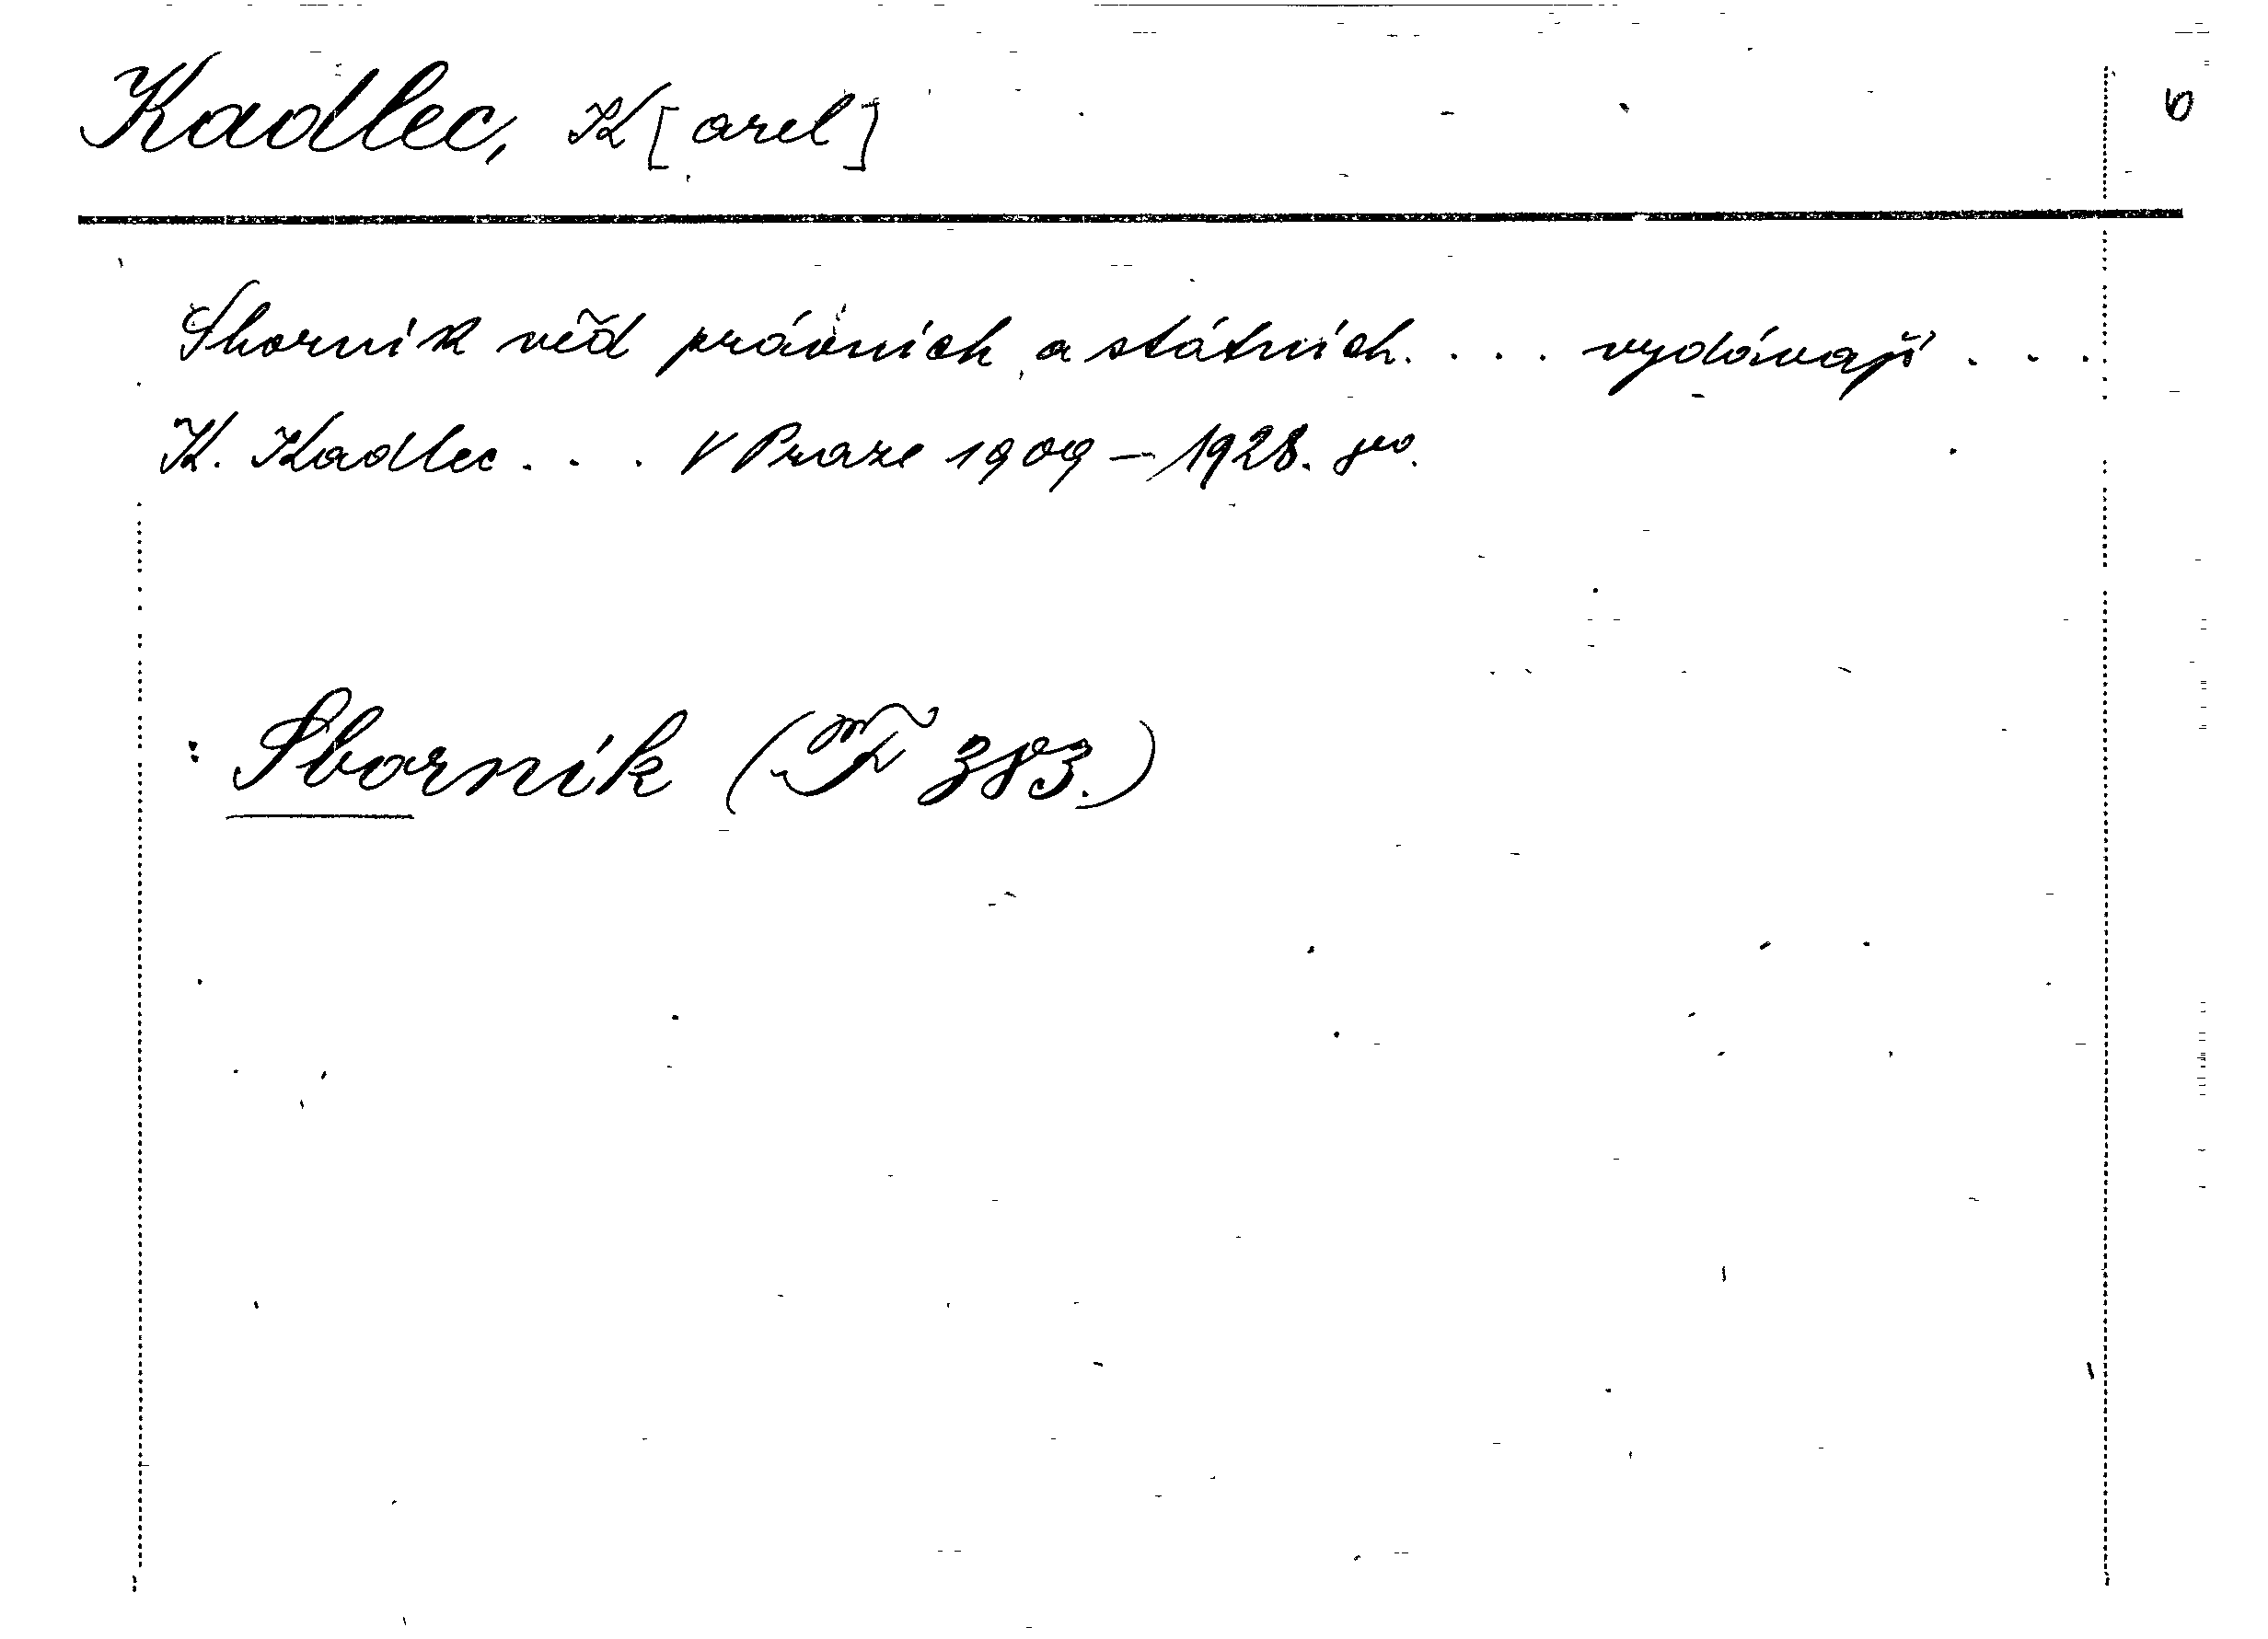 Kadlec, K[arel]
6
Sborník věd právních a státních. . . . vydávají . . .
K. Kadlec . . . V Praze 1909 – 1928. 8vo.
: Sborník (F 383.)